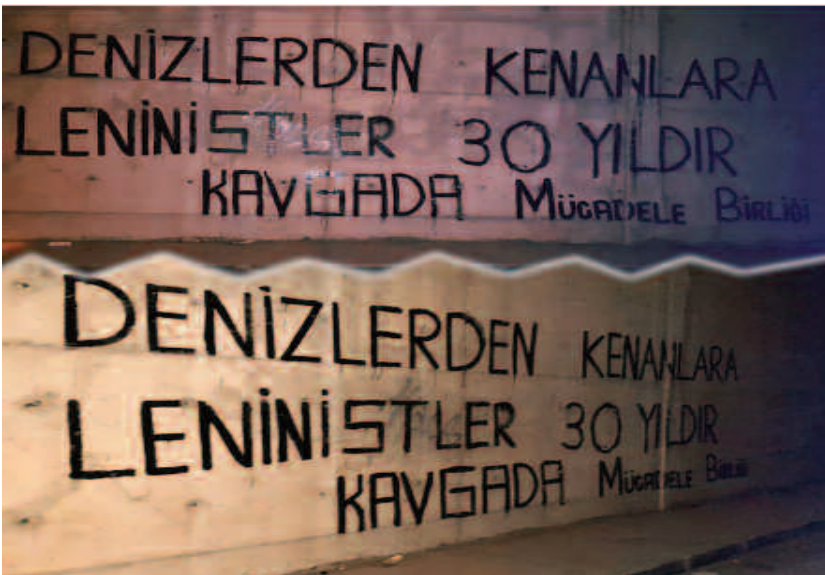 DENİZLERDEN KENANLARA
LENİNİSTLER 30 YILDIR
KAVGADA MÜCADELE BİRLİĞİ
DENİZLERDEN KENANLARA
LENİNİSTLER 30 YILDIR
KAVGADA MÜCADELE BİRLİĞİ